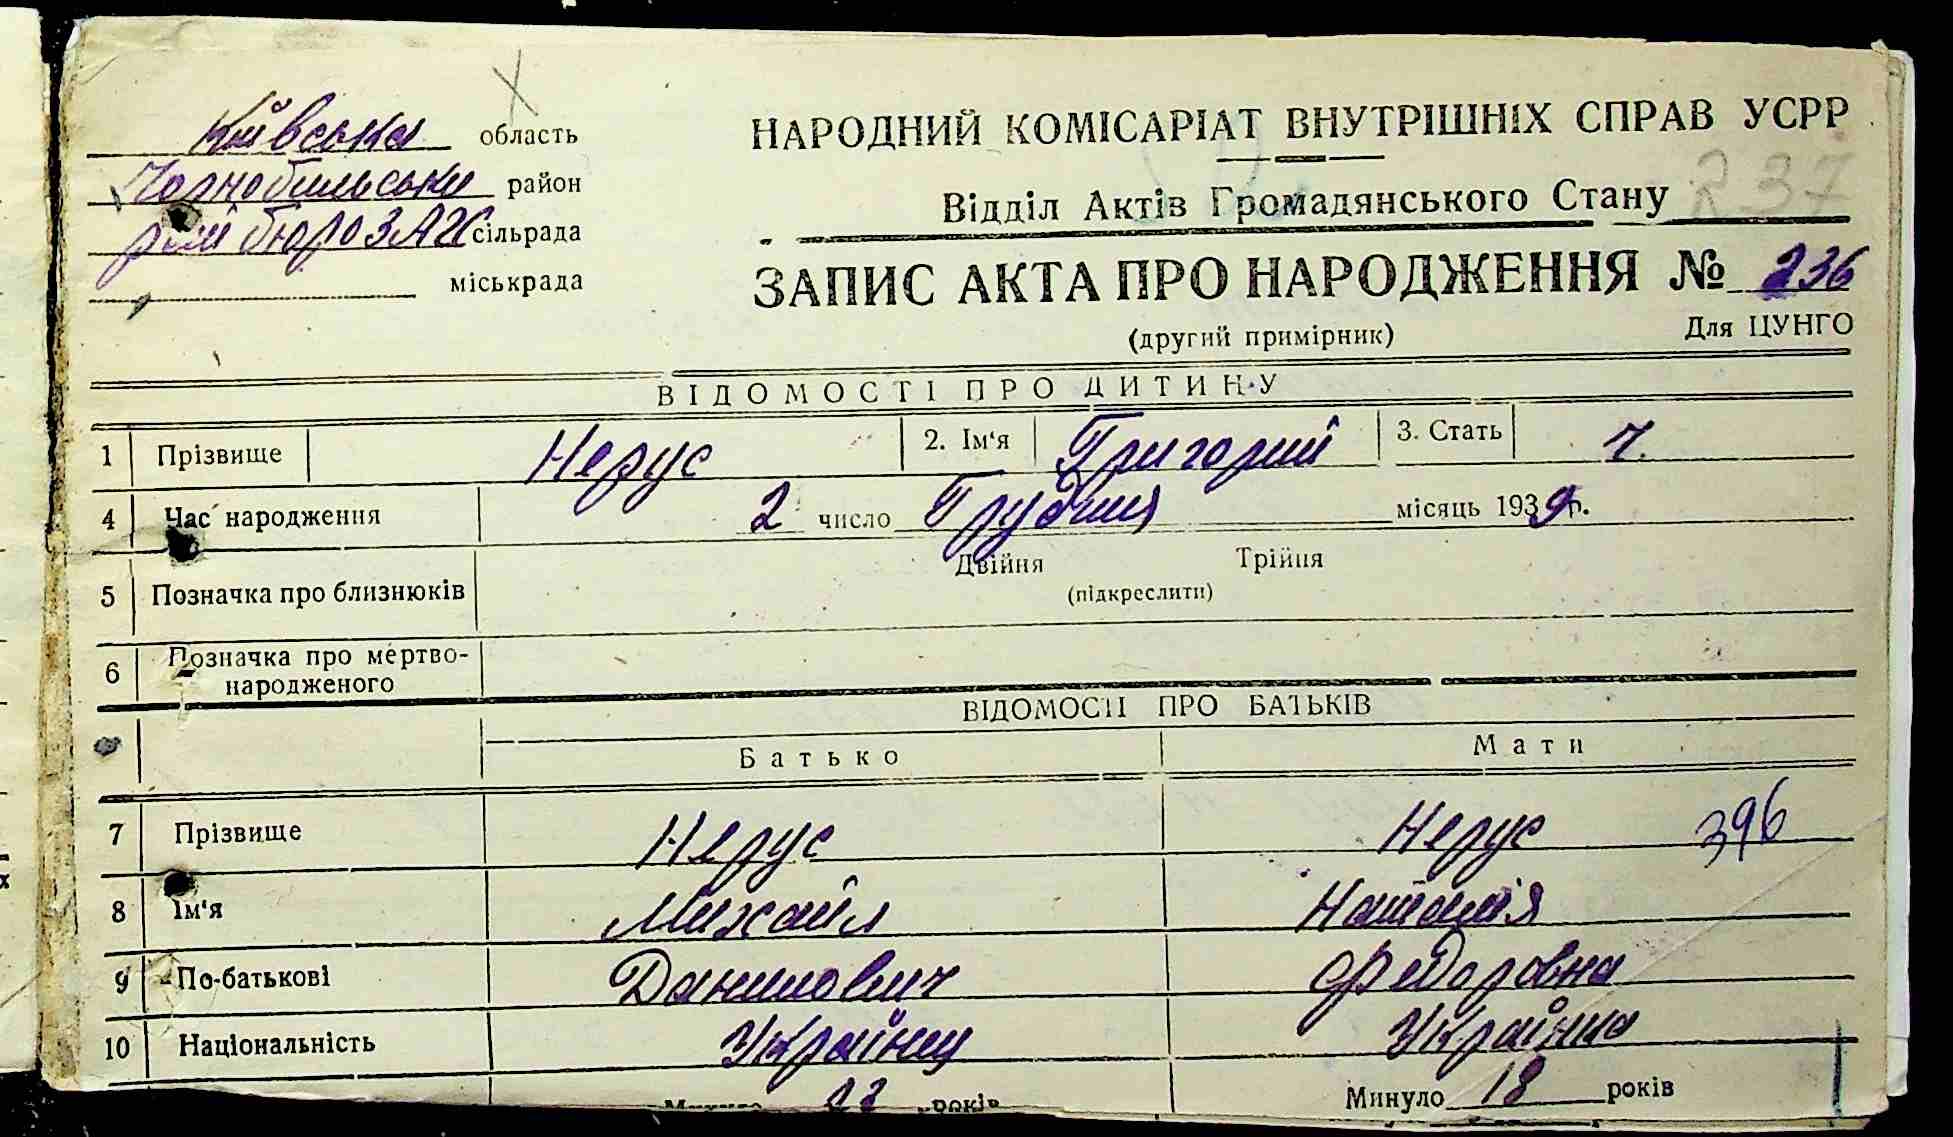 Київська область
Чорнобильськи район
рай бюро ЗАГС сільрада
міськрада
НАРОДНИЙ КОМІСАРІАТ ВНУТРІШНІХ СПРАВ УСРР
237
Відділ Актів Громадянського Стану
ЗАПИС АКТА ПРО НАРОДЖЕННЯ № 236
(другий примірник) Для ЦУНГО
ВІДОМОСТІ ПРО ДИТИНУ
1 Прізвище Нерус 2. Ім'я Григорий 3. Стать ч.
4 Час народження 2 число Грудня місяць 1939 р.
5 Позначка про близнюків Двійня Трійня
(підкреслити)
6 Позначка про мертво-
народженого
ВІДОМОСТІ ПРО БАТЬКІВ
Батько Мати
7 Прізвище Нерус Нерус 396
8 Ім'я Михайл Наталія
9 По-батькові Данилович Федоровна
10 Національність Українец Українка
Минуло років Минуло 18 років